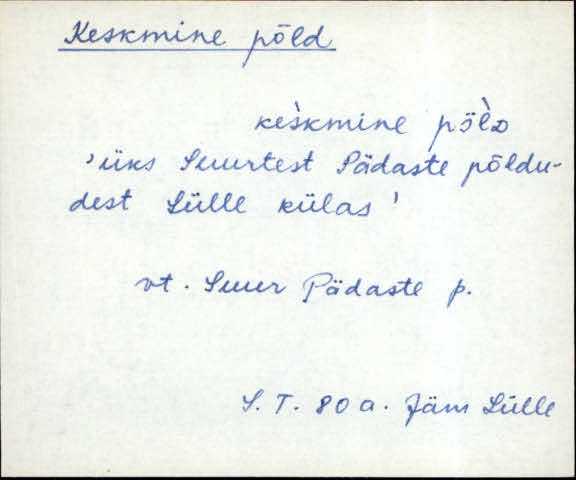 Keskmine põld
keskmine põ̀lᴅ
'üks Suurtest Pädaste põldu-
dest Lülle külas'
vt. Suur Pädaste p.
S. T. 80 a. Jäm Lülle